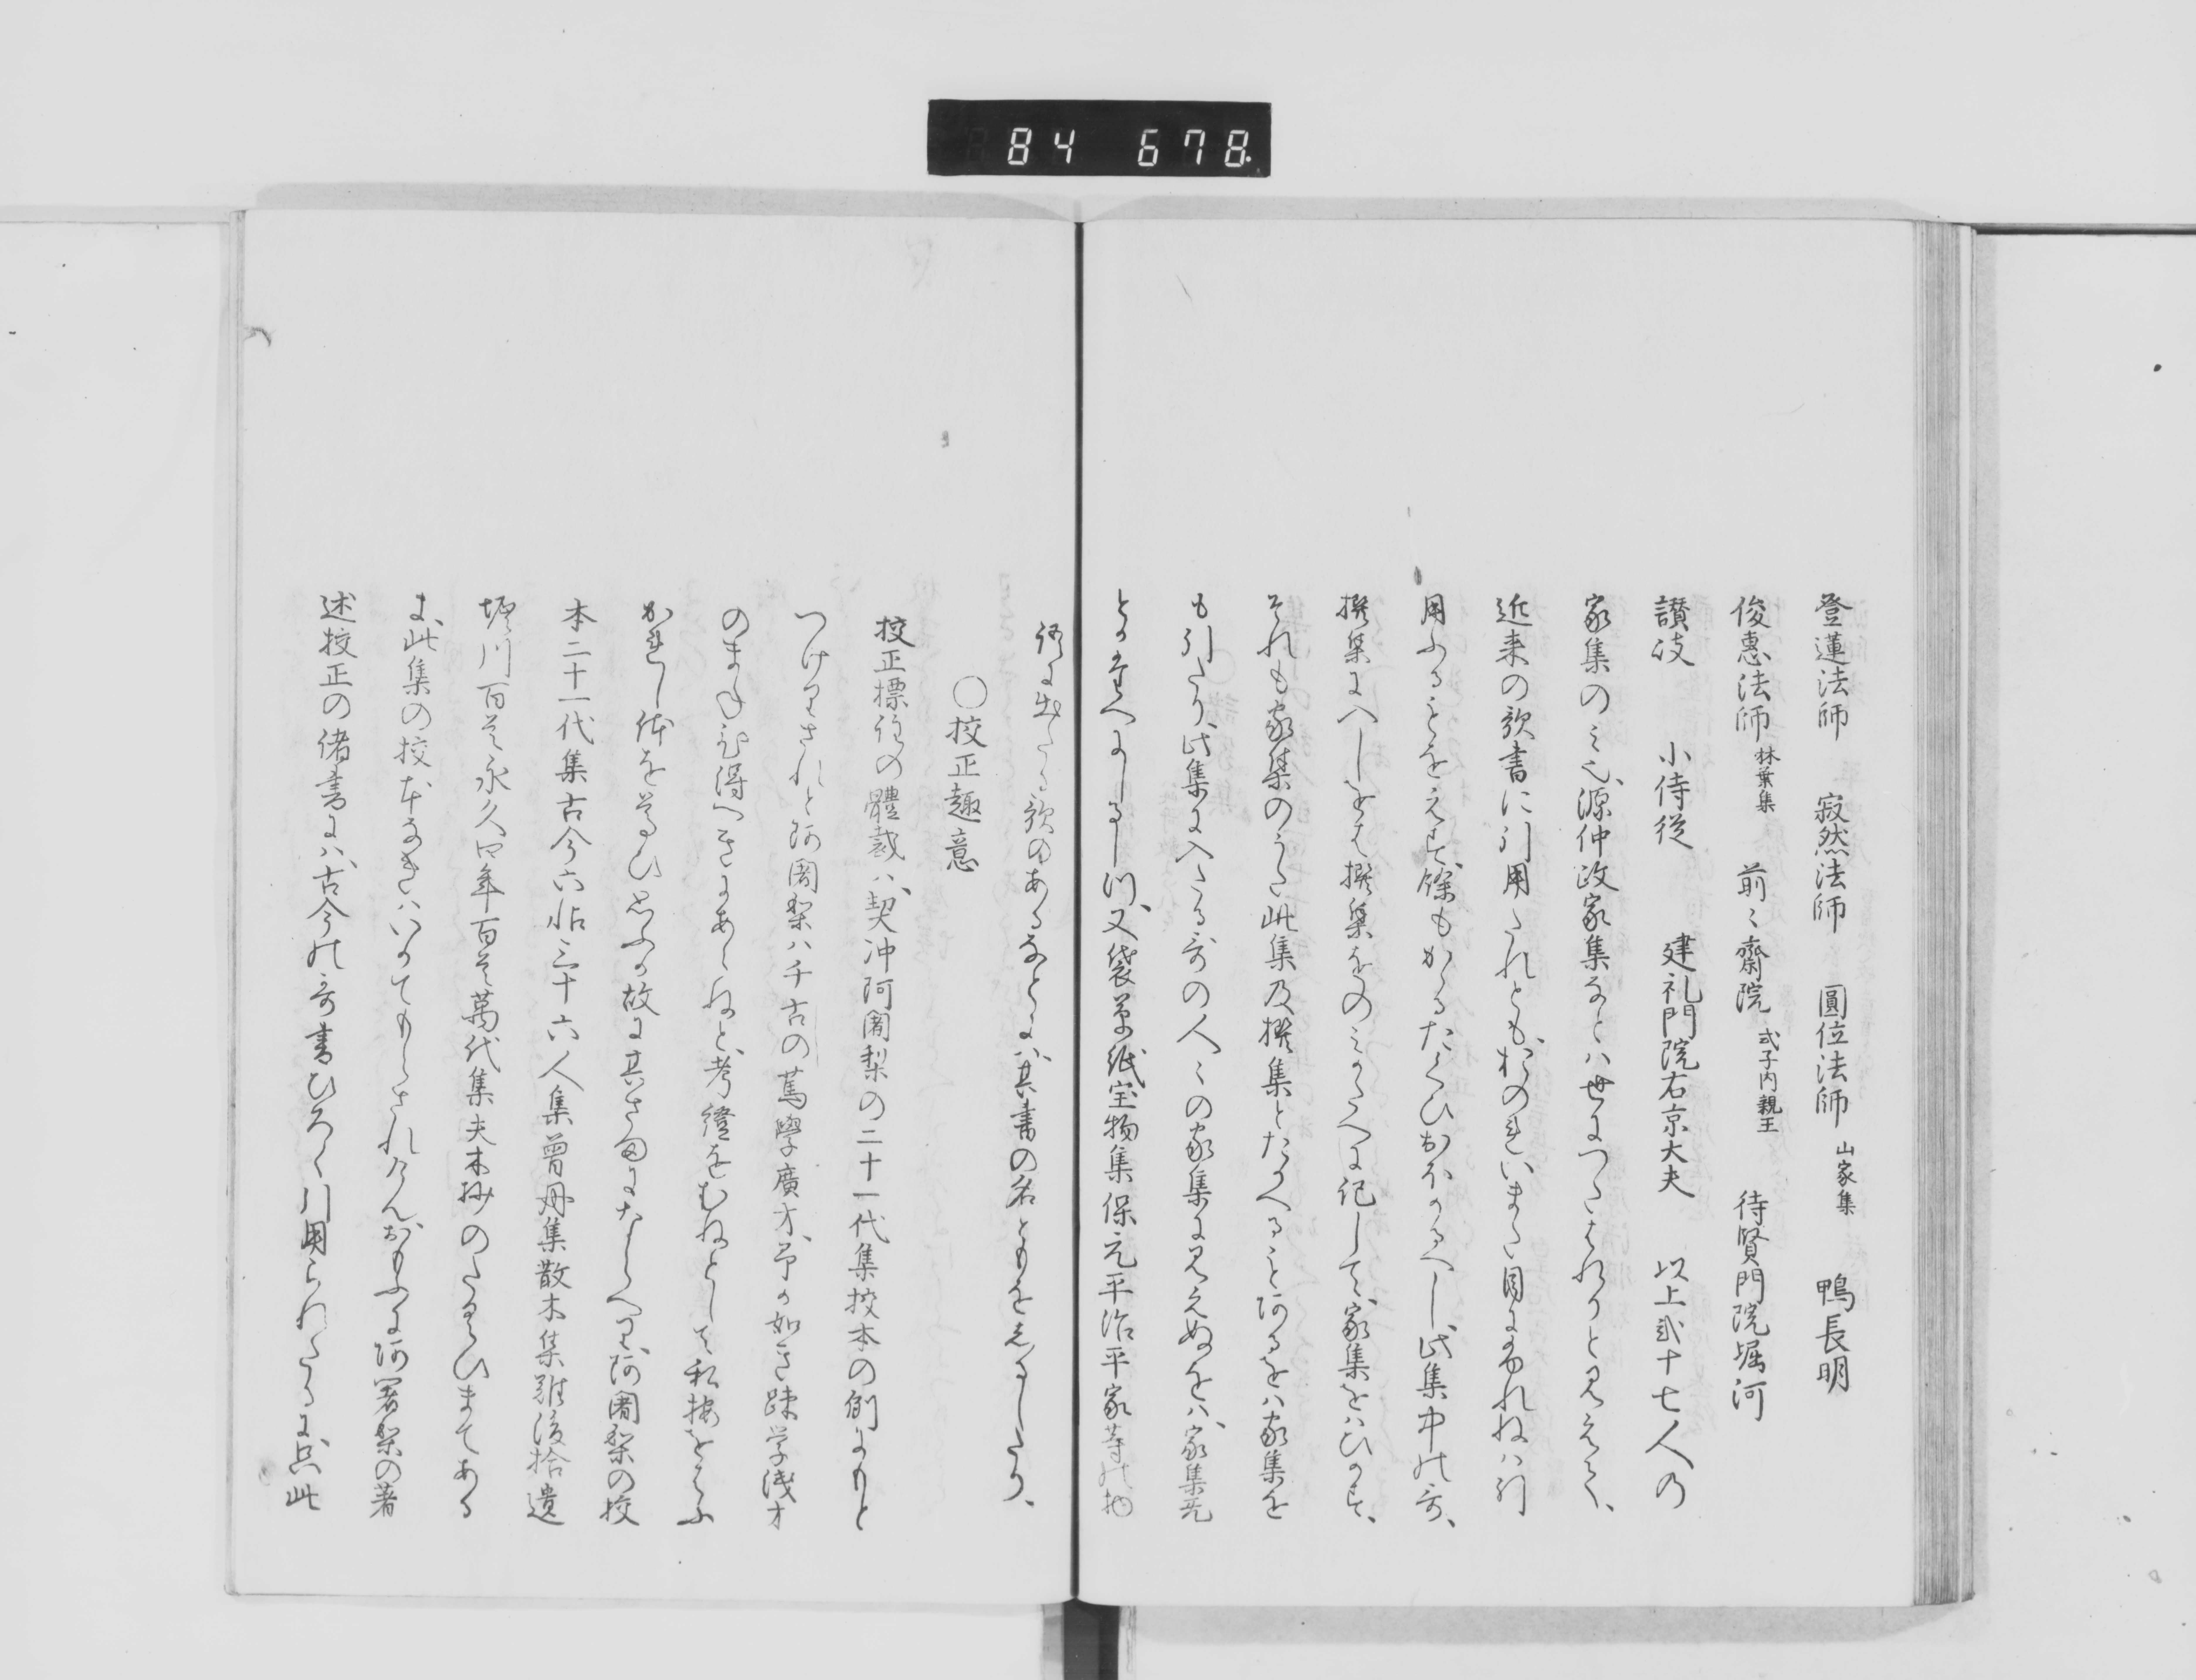 84 678.
登蓮法師 寂然法師 圓位法師 山家集 鴨長明
俊惠法師 林葉集 前〻齋院 式子内親王 待賢門院堀河
讃岐 小侍従 建礼門院右京大夫 以上弐十七人の
家集のミ也、源仲政家集なとハ世につたはれりと見えて、
近来の歌書に引用たれとも、おのれいまた目にふれねハ引
用ふることをえす、餘もかゝるたくひおほかるへし、此集中の哥、
撰集に入しをは撰集をのミかたへに記して、家集をハひかす、
それも家集のうた此集及撰集とたかへることあるをハ家集を
も引たり、此集に入たる哥の人〻の家集に見えぬをハ、家集无
とかたへにしるしつ、又袋草紙宝物集保元平治平家等の物
語に出たる歌のあるなとにハ、其書の名ともをしるしたり、
〇挍正趣意
挍正標注の體裁ハ、契沖阿闍梨の二十一代集挍本の例にもと
つけりされと阿闍梨ハ千古の篤學廣才、予か如き踈学浅才
のまねひ得へきにあらねと、考證をむねとして私按をくはふ
かれし躰をならひ思ふか故に其さまにならへり、阿闍梨の挍
本二十一代集古今六帖三十六人集曽丹集散木集難後拾遺
堀川百首永久四年百首萬代集夫木抄のたくひまてある
に、此集の挍本なきハいかてもらされけんおもふに阿闍梨の著
述挍正の諸書にハ、古今の哥書ひろく引用られたるに、只此